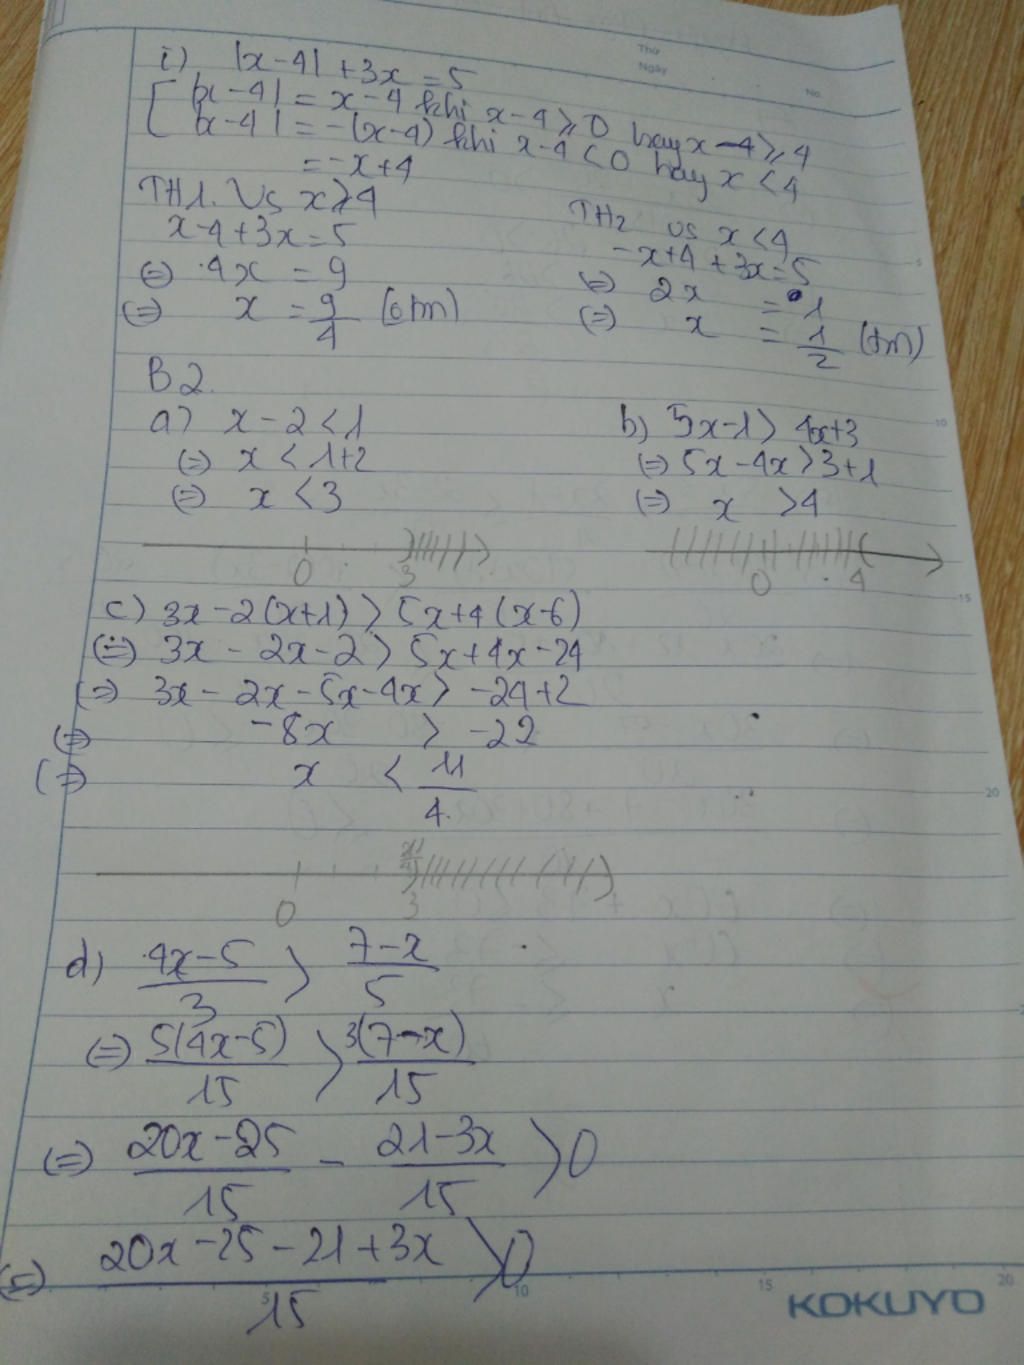 Thứ
Ngày
No.
i) |x-4| + 3x = 5
|x-4| = x-4 khi x-4 ⩾ 0 hay x-4 ⩾ 4
|x-4| = -(x-4) khi x-4 < 0 hay x < 4
= -x+4
TH1. Vs x ⩾ 4
x-4+3x=5
(=) 4x = 9
(=) x = 9/4 (
TH2 vs x<4
-x+4+3x=5
(=) 2x = 1
(=) x = 1/2 (tm)
B2.
a) x-2<1
(=) x < 1+2
(=) x < 3
0 3
b) 5x-1 > 4x+3
(=) 5x-4x > 3+1
(=) x > 4
0 4
c) 3x-2(x+1) > 5x+4(x-6)
(=) 3x - 2x-2 > 5x+4x-24
(=) 3x - 2x-5x-4x > -24+2
(=) -8x > -22
(=) x < 11/4
11/4
0 3
d) 4x-5/3 > 7-x/5
(=) 5(4x-5)/15 > 3(7-x)/15
(=) 20x-25/15 - 21-3x/15 > 0
(=) 20x-25-21+3x/15 > 0
5 10 15 20
5
10
15
20
KOKUYO